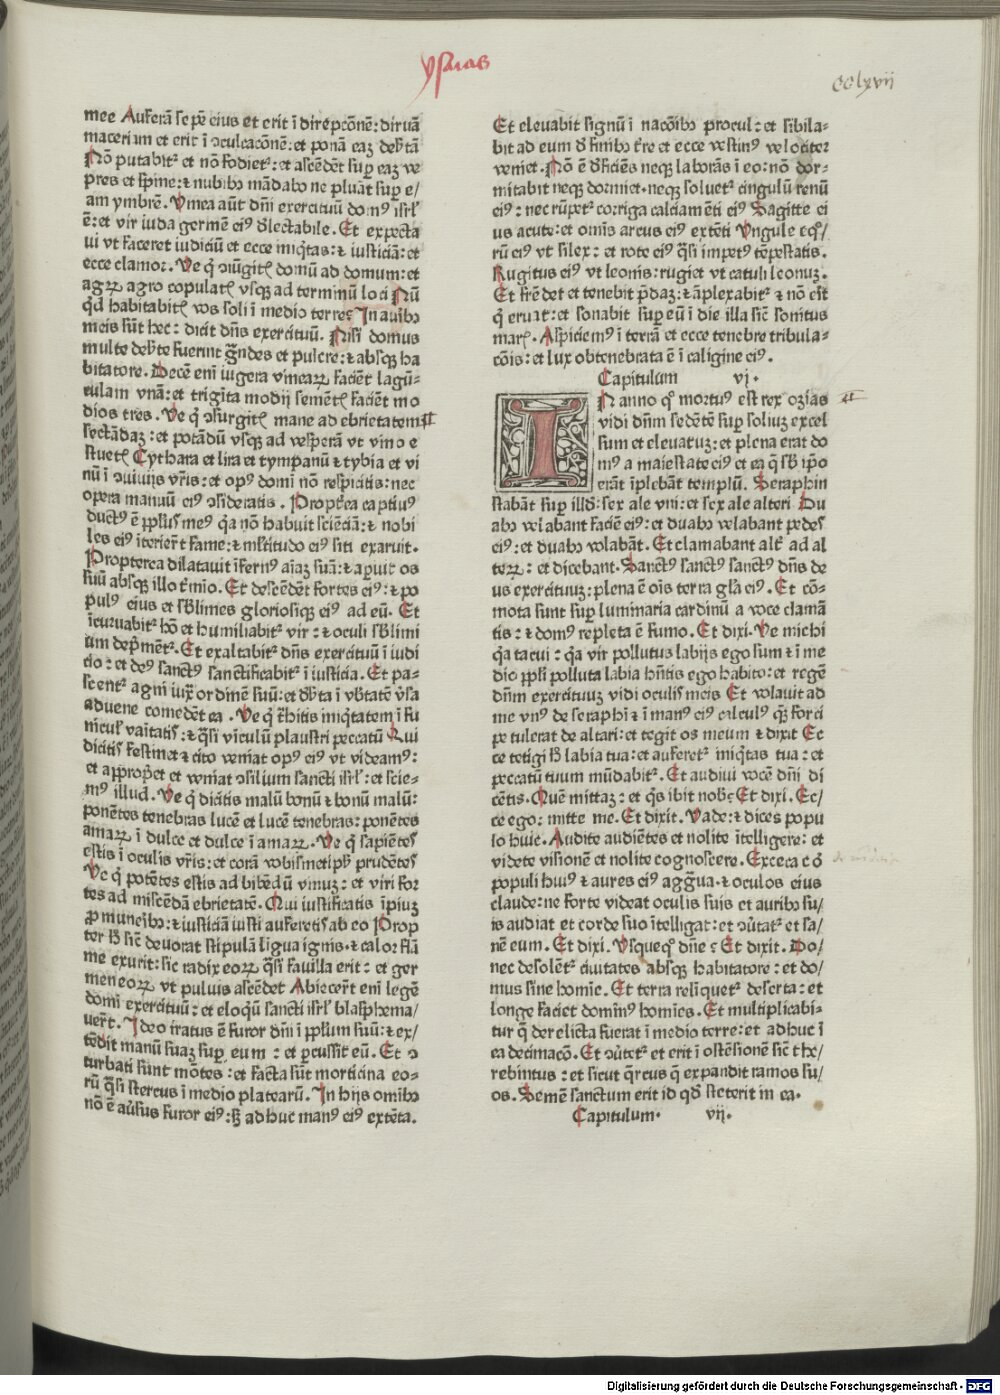 ysaias
cclxvii
mee Auferā sepē eius et erit ī direpcōnē: diruā
maceriam et erit ī ↄculcacōnē: et ponā eaꝫ deß̄tā
Nō putabit᷒ et nō fodiet᷒: et ascēdēt suꝑ eaꝫ ve
pres et spine: ⁊ nubibꝫ mādabo ne pluāt suꝑ e/
am ymbrē. Vinea aūt dn̄i exercituū domꝰ isrl̄
ē: et vir iuda germē eiꝰ d̄lectabile. Et expecta
ui vt faceret iudiciū et ecce iniq̇tas: ⁊ iusticiā: et
ecce clamor. Ve q̇ ↄiūgitꝭ domū ad domum: et
agrꝝ agro copulatꝭ vsqꝫ ad terminū loci Nū
qd̓ habitabitꝭ vos soli ī medio terre: In auribꝫ
meis sūt hec: dicit dn̄s exercituū. Nisi domus
multe deb̄te fuerint gn̄des et pulcre: ⁊ absqꝫ ha
bitatore. Decē enī iugera vinearꝝ faciēt lagū-
culam vnā: et trigīta modij semētꝭ faciēt mo
dios tres. Ve q̇ ↄsurgitꝭ mane ad ebrietatem
sectādaꝫ: et potādū vsqꝫ ad vesperā vt vino e
stuetꝭ Cythara et lira et tympanū ⁊ tybia et vi
nū ī ↄuiuijs vr̄is: et opꝰ domī nō respicitis: nec
opera manuū eiꝰ ↄsideratis. Propt̓ea captiuꝰ
ductꝰ ē ꝓpl̓us meꝰ q̓a nō habuit sciēciā: ⁊ nobi
les eiꝰ īterier̄t fame: ⁊ ml̓titudo eiꝰ siti exaruit.
Propterea dilatauit īfernꝰ aīaꝫ suā: ⁊ aꝑuit os
suū absqꝫ illo t̓mio. Et descēdēt fortes eiꝰ: ⁊ po
pulꝰ eius et sb̓limes gloriosiqꝫ eiꝰ ad eū. Et
īcuruabit᷒ hō et humiliabit᷒ vir: ⁊ oculi sb̓limi
um dep̓mēt᷒. Et exaltabit᷒ dn̄s exercituū ī iudi
cio: et deꝰ sanctꝰ sanctificabit᷒ ī iusticia. Et pa-
scent᷒ agni iuxͣ ordinē suū: et deß̄ta ī vb̓tatē v̓sa
aduene comedēt ea. Ve q̇ tͣhitis iniq̇tatem ī fu
nicul̓ vaītatꝭ: ⁊ q̓si vīculū plaustri peccatū Qui
dicitis festinet ⁊ cito veniat opꝰ eiꝰ vt videamꝰ:
et appropēt et veniat ↄsilium sancti isrl̄: et scie-
mꝰ illud. Ve q̇ dicitis malū bonū ⁊ bonū malū:
ponētes tenebras lucē et lucē tenebras: ponētes
amarꝝ ī dulce et dulce ī amarꝝ. Ve q̇ sapiētes
estis ī oculis vr̄is: et corā vobismetipß prudētes
Ve q̇ potētes estis ad bibēdū vinuꝫ: et viri for
tes ad miscēdā ebrietatē. Qui iustificatis īpiuꝫ
ꝓ munerībꝫ: ⁊ iusticiā iusti aufertis ab eo Prop
ter ß sic̄ deuorat stipulā ligua ignis. ⁊ calor flā
me exurit: sic radix eorꝝ q̓si fauilla erit: et ger
men eorꝝ vt puluis ascēdet Abiecer̄t enī legē
domī exercituū: et eloqū sancti isrl̄ blasphema/
uer̄t. Ideo iratus ē furor dn̄i ī ꝓpl̓um suū: ⁊ ex/
tēdit manū suaꝫ suꝑ eum: et ꝑcussit eū. Et ↄ
turbati sunt mōtes: et facta sūt morticina eo-
rū q̓si stercus ī medio platearū. In hijs omībꝫ
nō ē au̓sus furor eiꝰ: sꝫ adhuc manꝰ eiꝰ extēta.
Et eleuabit signū ī nacōibꝫ procul: et sibila-
bit ad eum d̓ finibꝫ t̓re et ecce vestinꝰ velociter
veniet. Nō ē d̓ficiēs neqꝫ laborās ī eo: nō dor-
mitabit neqꝫ dormiet. neqꝫ soluet᷒ cingulū renū
eiꝰ: nec rūpet᷒ corrigia calciamēti eiꝰ Sagitte ei
us acute: et omīs arcus eiꝰ extēti Vngule eqͦ/
rū eiꝰ vt silex: et rote eiꝰ q̓si impetꝰ tēpestatis.
Rugitus eiꝰ vt leonis: rugiet vt catuli leonuꝫ.
Et frēdet et tenebit p̄daꝫ: ⁊ āplexabit᷒ ⁊ nō est
q̇ eruat: et sonabit suꝑ eū ī die illa sic̄ sonitus
marꝭ. Aspiciemꝰ ī terrā et ecce tenebre tribula-
cōis: et lux obtenebrata ē ī caligine eiꝰ.
Capitulum vi.
IN anno qͦ mortuꝰ est rex ozias
vidi dn̄m sedētē suꝑ soliuꝫ excel
sum et eleuatuꝫ: et plena erat do
mꝰ a maiestate eiꝰ et ea q̄ sb̓ ip̄o
erāt īplebāt templū. Seraphin
stabāt suꝑ illd̓: sex ale vni: et sex ale alteri Du
abꝫ velabant faciē eiꝰ: et duabꝫ velabant pedes
eiꝰ: et duabꝫ volabāt. Et clamabant alt̓ ad al
terꝝ: et dicebant. Sanctꝰ sanctꝰ sanctꝰ dn̄s de
us exercituuꝫ: plena ē oīs terra gl̓a eiꝰ. Et cō-
mota sunt suꝑ luminaria cardinū a voce clamā
tis: ⁊ domꝰ repleta ē fumo. Et dixi. Ve michi
q̓a tacui: q̓a vir pollutus labijs ego sum ⁊ ī me
dio ꝓpl̓i polluta labia hn̄tis ego habito: et regē
dn̄m exercituuꝫ vidi oculis meis Et volauit ad
me vnꝰ de seraphī ⁊ ī manꝰ eiꝰ calculꝰ q̄ꝫ forci
pe tulerat de altari: et tegit os meum ⁊ dixit Ec
ce tetigi ß labia tua: et auferet᷒ iniq̇tas tua: et
peccatū tuum mūdabit᷒. Et audiui vocē dn̄i di
cētis. Quē mittaꝫ: et q̇s ibit nob̓: Et dixi. Ec/
ce ego: mitte me. Et dixit. Vade: ⁊ dices popu
lo huic. Audite audiētes et nolite ītelligere: et
videte visionē et nolite cognoscere. Exceca cō
populi huiꝰ ⁊ aures eiꝰ aggͣua. ⁊ oculos eius
claude: ne forte videat oculis suis et auribꝫ su/
is audiat et corde suo ītelligat: et ↄu̓tat᷒ et sa/
nē eum. Et dixi. Vsqueqͦ dn̄e: Et dixit. Do/
nec desolēt᷒ ciuitates absqꝫ habitatore: et do/
mus sine homīe. Et terra relīquet᷒ deserta: et
longe faciet dominꝰ homīes. Et multiplicabi/
tur q̄ derelicta fuerat ī medio terre: et adhuc ī
ea decimacō. Et ↄu̓tet᷒ et erit ī ostēsionē sic̄ the/
rebintus: et sicut q̓rcus q̄ expandit ramos su/
os. Semē sanctum erit id qd̓ steterit in ea.
Capitulum. vii.
Digitalisierung gefördert durch die Deutsche Forschungsgemeinschaft - DFG